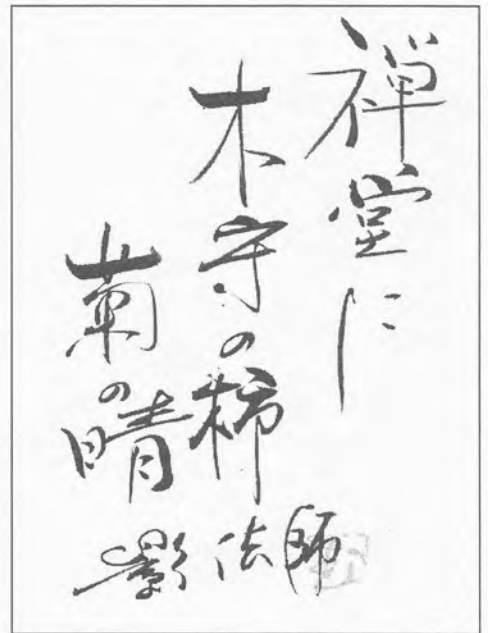 禅堂に
木守の柿
菊の晴
影法師